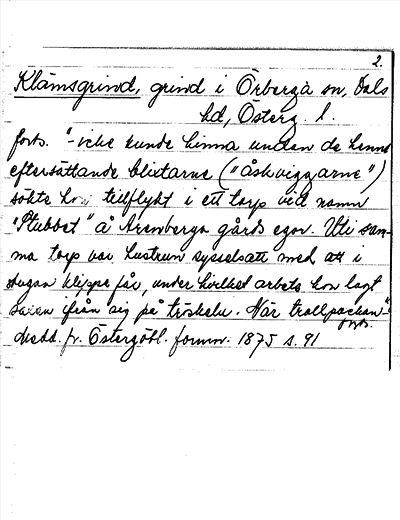 2.
Klämsgrind, grind i Örberga sn, Dals
hd, Österg. l.
forts. "- icke kunde hinna undan de henne
eftersättande blixtarne ("åskviggarne")
sökte hon tillflykt i ett torp vid namn
"Stubbet" å Avenberga gårds egor. Uti sam-
ma torp var hustrun sysselsatt med att i
stugan klippa får, under hvilket arbete hon lagt
saxen ifrån sig på tröskeln. När trollpackan"
forts.
Medd. fr. Östergötl. fornm. 1875 s. 91